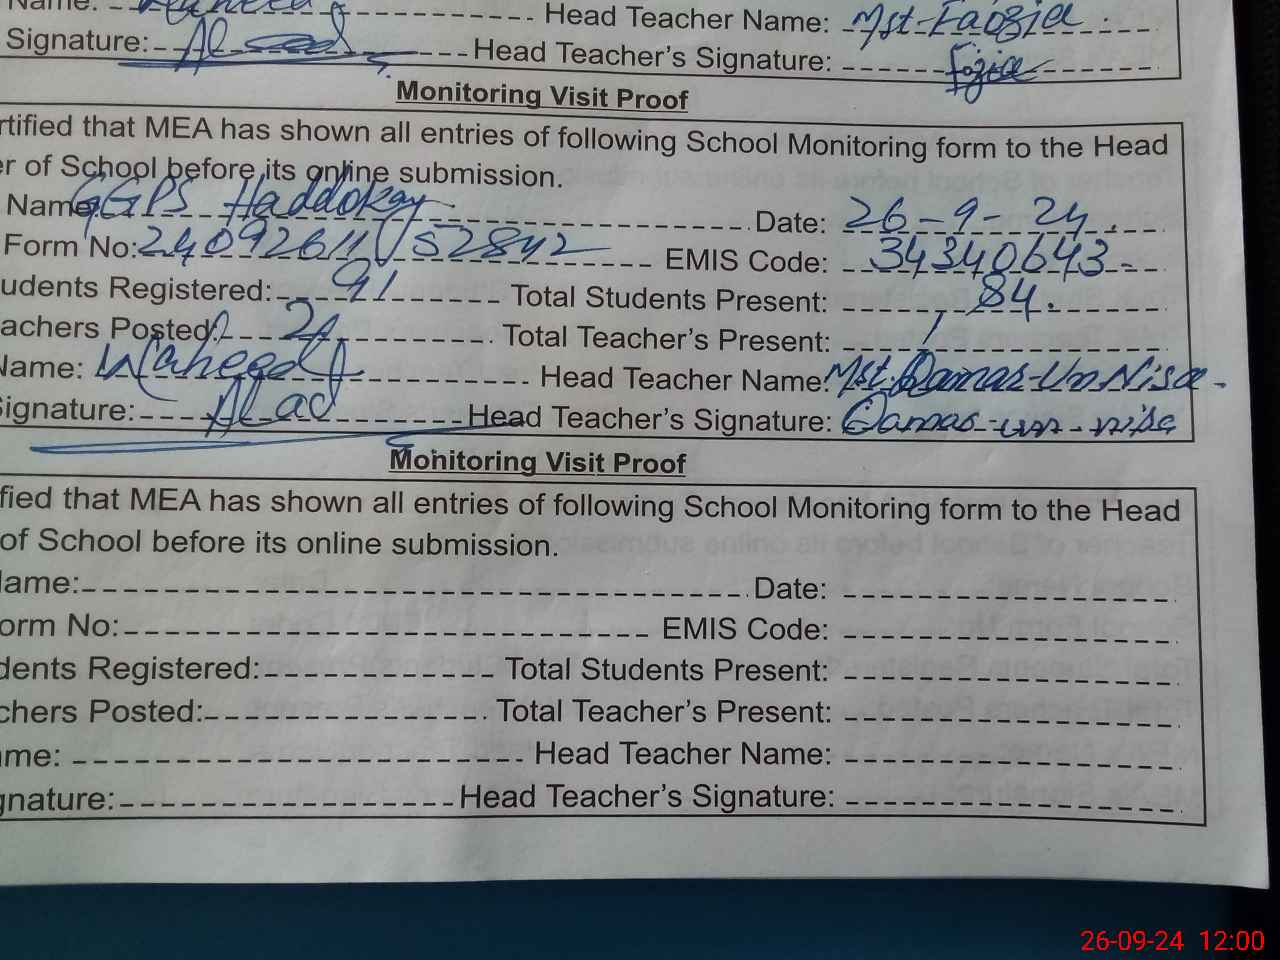 Name: Waheed Head Teacher Name: Mst. Faozia
Signature: Head Teacher's Signature: Fozia
Monitoring Visit Proof
rtified that MEA has shown all entries of following School Monitoring form to the Head
er of School before its online submission.
Name GGPS Haddokay Date: 26-9-24.
Form No: 24092611 52842 EMIS Code: 34340643
udents Registered: 91 Total Students Present: 84.
achers Posted: 2 Total Teacher's Present: 1
Name: Waheed Head Teacher Name: Mst. Qamar-Un-Nisa
Signature: Head Teacher's Signature: Qamar-un-nisa
Monitoring Visit Proof
fied that MEA has shown all entries of following School Monitoring form to the Head
of School before its online submission.
ame: Date:
orm No: EMIS Code:
dents Registered: Total Students Present:
chers Posted: Total Teacher's Present:
ame: Head Teacher Name:
gnature: Head Teacher's Signature:
26-09-24 12:00